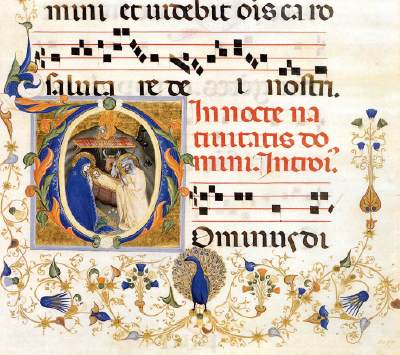 mini et uidebit oīs caro
saluta re de i nostri.
In nocte na
tiuitatis do
mini. Introiꝰ.
DOminus di